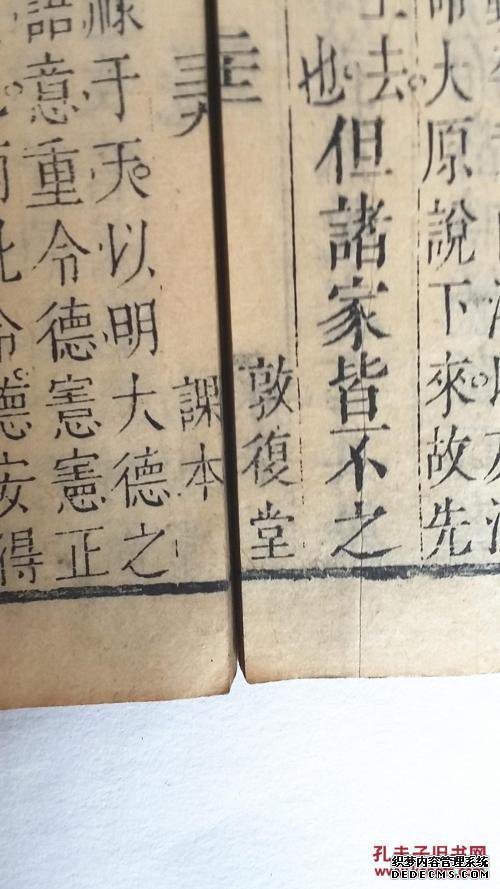 命大原說下來故先
上去
也但諸家皆不之
敦復堂
課本
祿于天以明大德之
語意重令德憲憲正
此令德安得
孔夫子旧书网
织梦内容管理系统
DEDECMS.COM